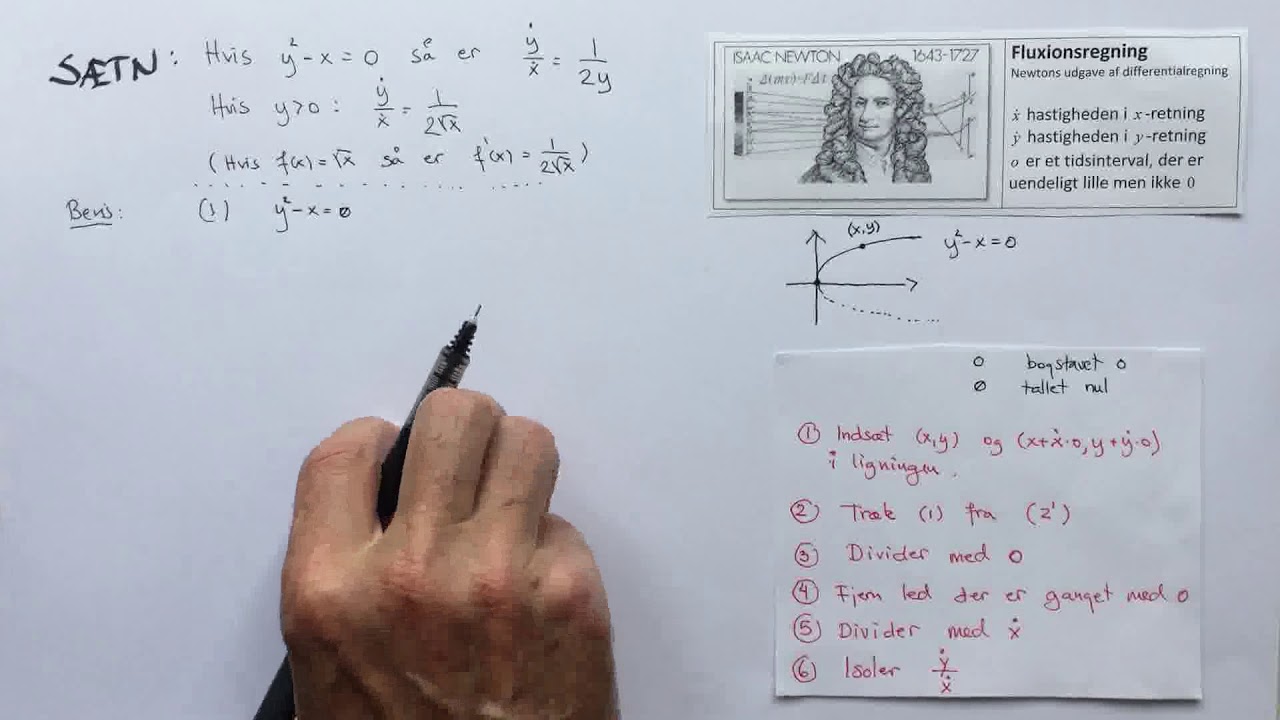 SÆTN: Hvis y²-x=0 så er ẏ/ẋ = 1/2y
Hvis y>0: ẏ/ẋ = 1/2√x
(Hvis f(x)=√x så er f'(x) = 1/2√x)
Bevis: (1) y²-x=0
ISAAC NEWTON 1643-1727
Δ(mv)=FΔt
Fluxionsregning
Newtons udgave af differentialregning
ẋ hastigheden i x-retning
ẏ hastigheden i y-retning
o er et tidsinterval, der er
uendeligt lille men ikke 0
(x,y)
y²-x=0
o bogstavet o
∅ tallet nul
① Indsæt (x,y) og (x+ẋ·o, y+ẏ·o)
i ligningen.
② Træk (1) fra (2')
③ Divider med o
④ Fjern led der er ganget med o
⑤ Divider med ẋ
⑥ Isoler ẏ/ẋ